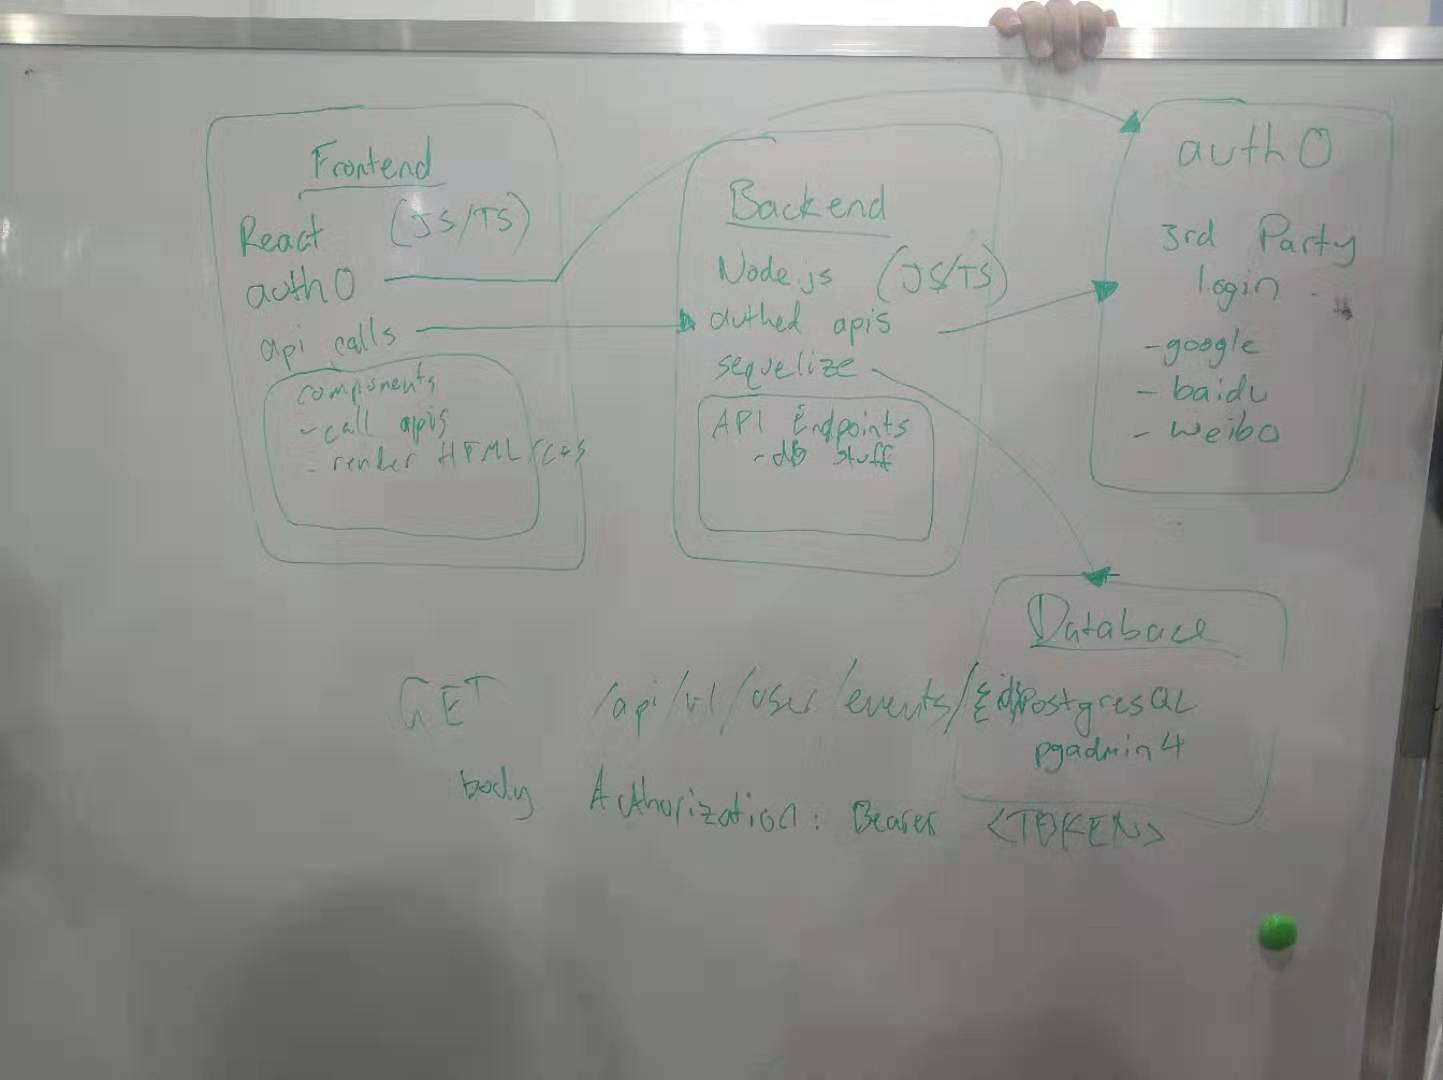 Frontend
React (JS/TS)
auth0
api calls
components
- call apis
- render HTML/css
Backend
Node.js (JS/TS)
authed apis
sequelize
API Endpoints
- db stuff
auth0
3rd Party
Login
- google
- baidu
- weibo
Database
PostgresQL
pgadmin4
GET /api/v1/user/events/{id}
body Authorization: Bearer <TOKEN>